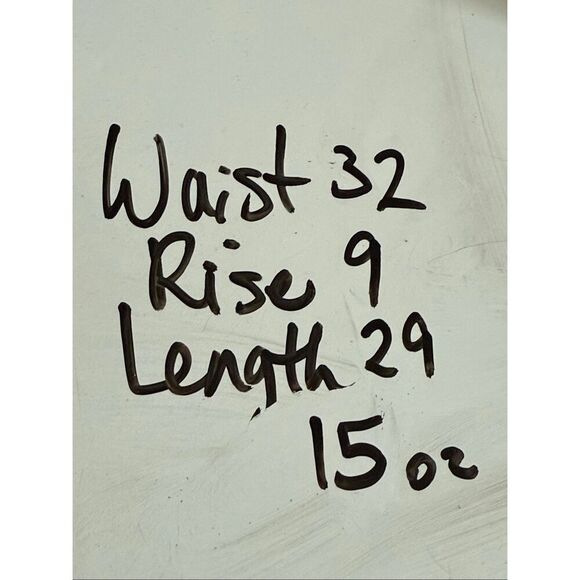 Waist 32
Rise 9
Length 29
15 oz